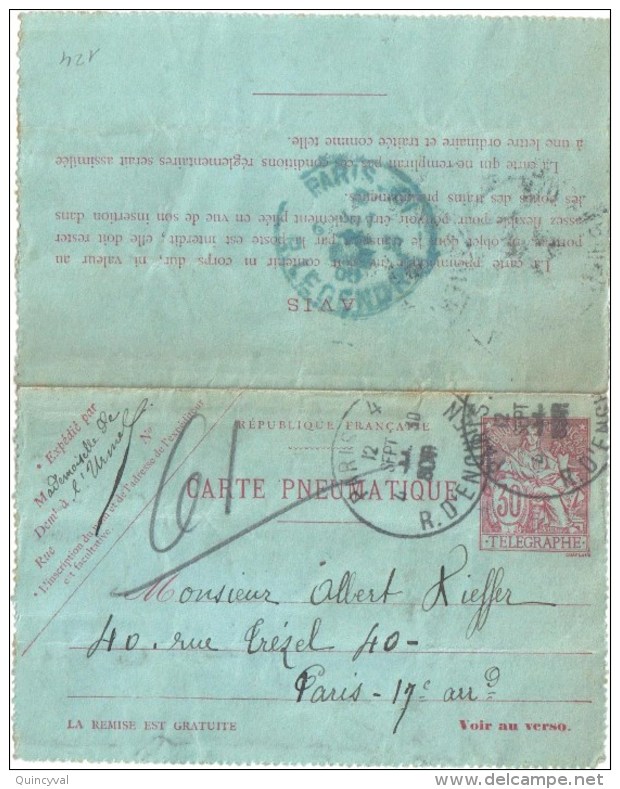 124
AVIS
La carte pneumatique ne doit contenir ni corps dur, ni valeur au
porteur. L'objet dont le transport par la poste est interdit; elle doit rester
assez flexible pour pouvoir être facilement pliée en vue de son insertion dans
les boîtes des trains pneumatiques.
La carte qui ne remplirait pas ces conditions réglementaires serait assimilée
à une lettre ordinaire et traitée comme telle.
PARIS
LEGENDRE
Expédié par
Mademoiselle de
l'Urmel
Demt à
Rue
No
L'inscription du nom et de l'adresse de l'expéditeur
est facultative.
RÉPUBLIQUE FRANÇAISE
CARTE PNEUMATIQUE
61
PARIS
12
SEPT
R. D'ENGHIEN
30
TÉLÉGRAPHE
Monsieur Albert Kieffer
40. rue Trézel 40-
Paris - 17e arrd
LA REMISE EST GRATUITE
Voir au verso.
Quincyval
delcampe.net